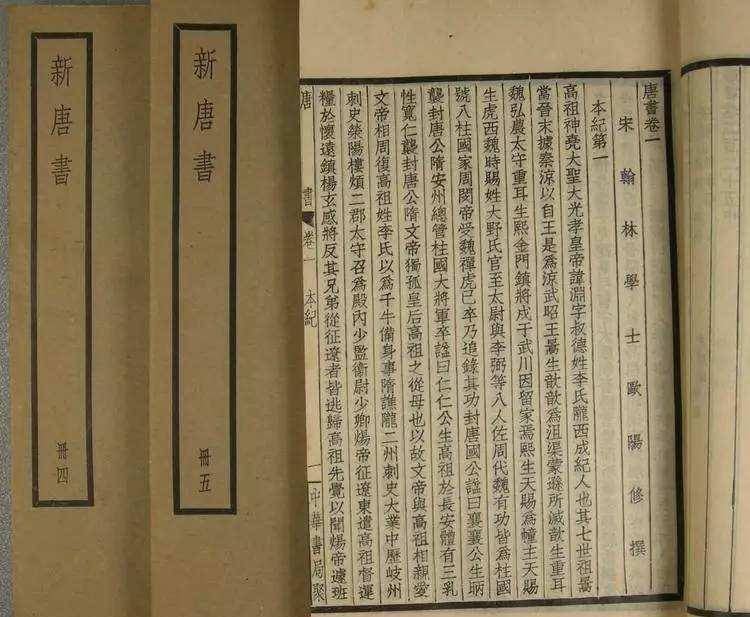 新唐書
冊四
新唐書
冊五
唐書卷一
宋翰林學士歐陽修撰
本紀第一
高祖神堯大聖大光孝皇帝諱淵字叔德姓李氏隴西成紀人也其七世祖暠
當晉末據秦涼以自王是爲涼武昭王暠生歆歆爲沮渠蒙遜所滅歆生重耳
魏弘農太守重耳生熙金門鎮將戍于武川因留家焉熙生天賜爲幢主天賜
生虎西魏時賜姓大野氏官至太尉與李弼等八人佐周代魏有功皆爲柱國
號八柱國家周閔帝受魏禪虎已卒乃追錄其功封唐國公諡曰襄襄公生昞
襲封唐公隋安州總管柱國大將軍卒諡曰仁仁公生高祖於長安體有三乳
性寬仁襲封唐公隋文帝獨孤皇后高祖之從母也以故文帝與高祖相親愛
文帝相周復高祖姓李氏以爲千牛備身事隋譙隴二州刺史大業中歷岐州
刺史滎陽樓煩二郡太守召爲殿內少監衞尉少卿煬帝征遼東遣高祖督運
糧於懷遠鎮楊玄感將反其兄弟從征遼者皆逃歸高祖先覺以聞煬帝遽班
唐書卷一 本紀
一
中華書局聚